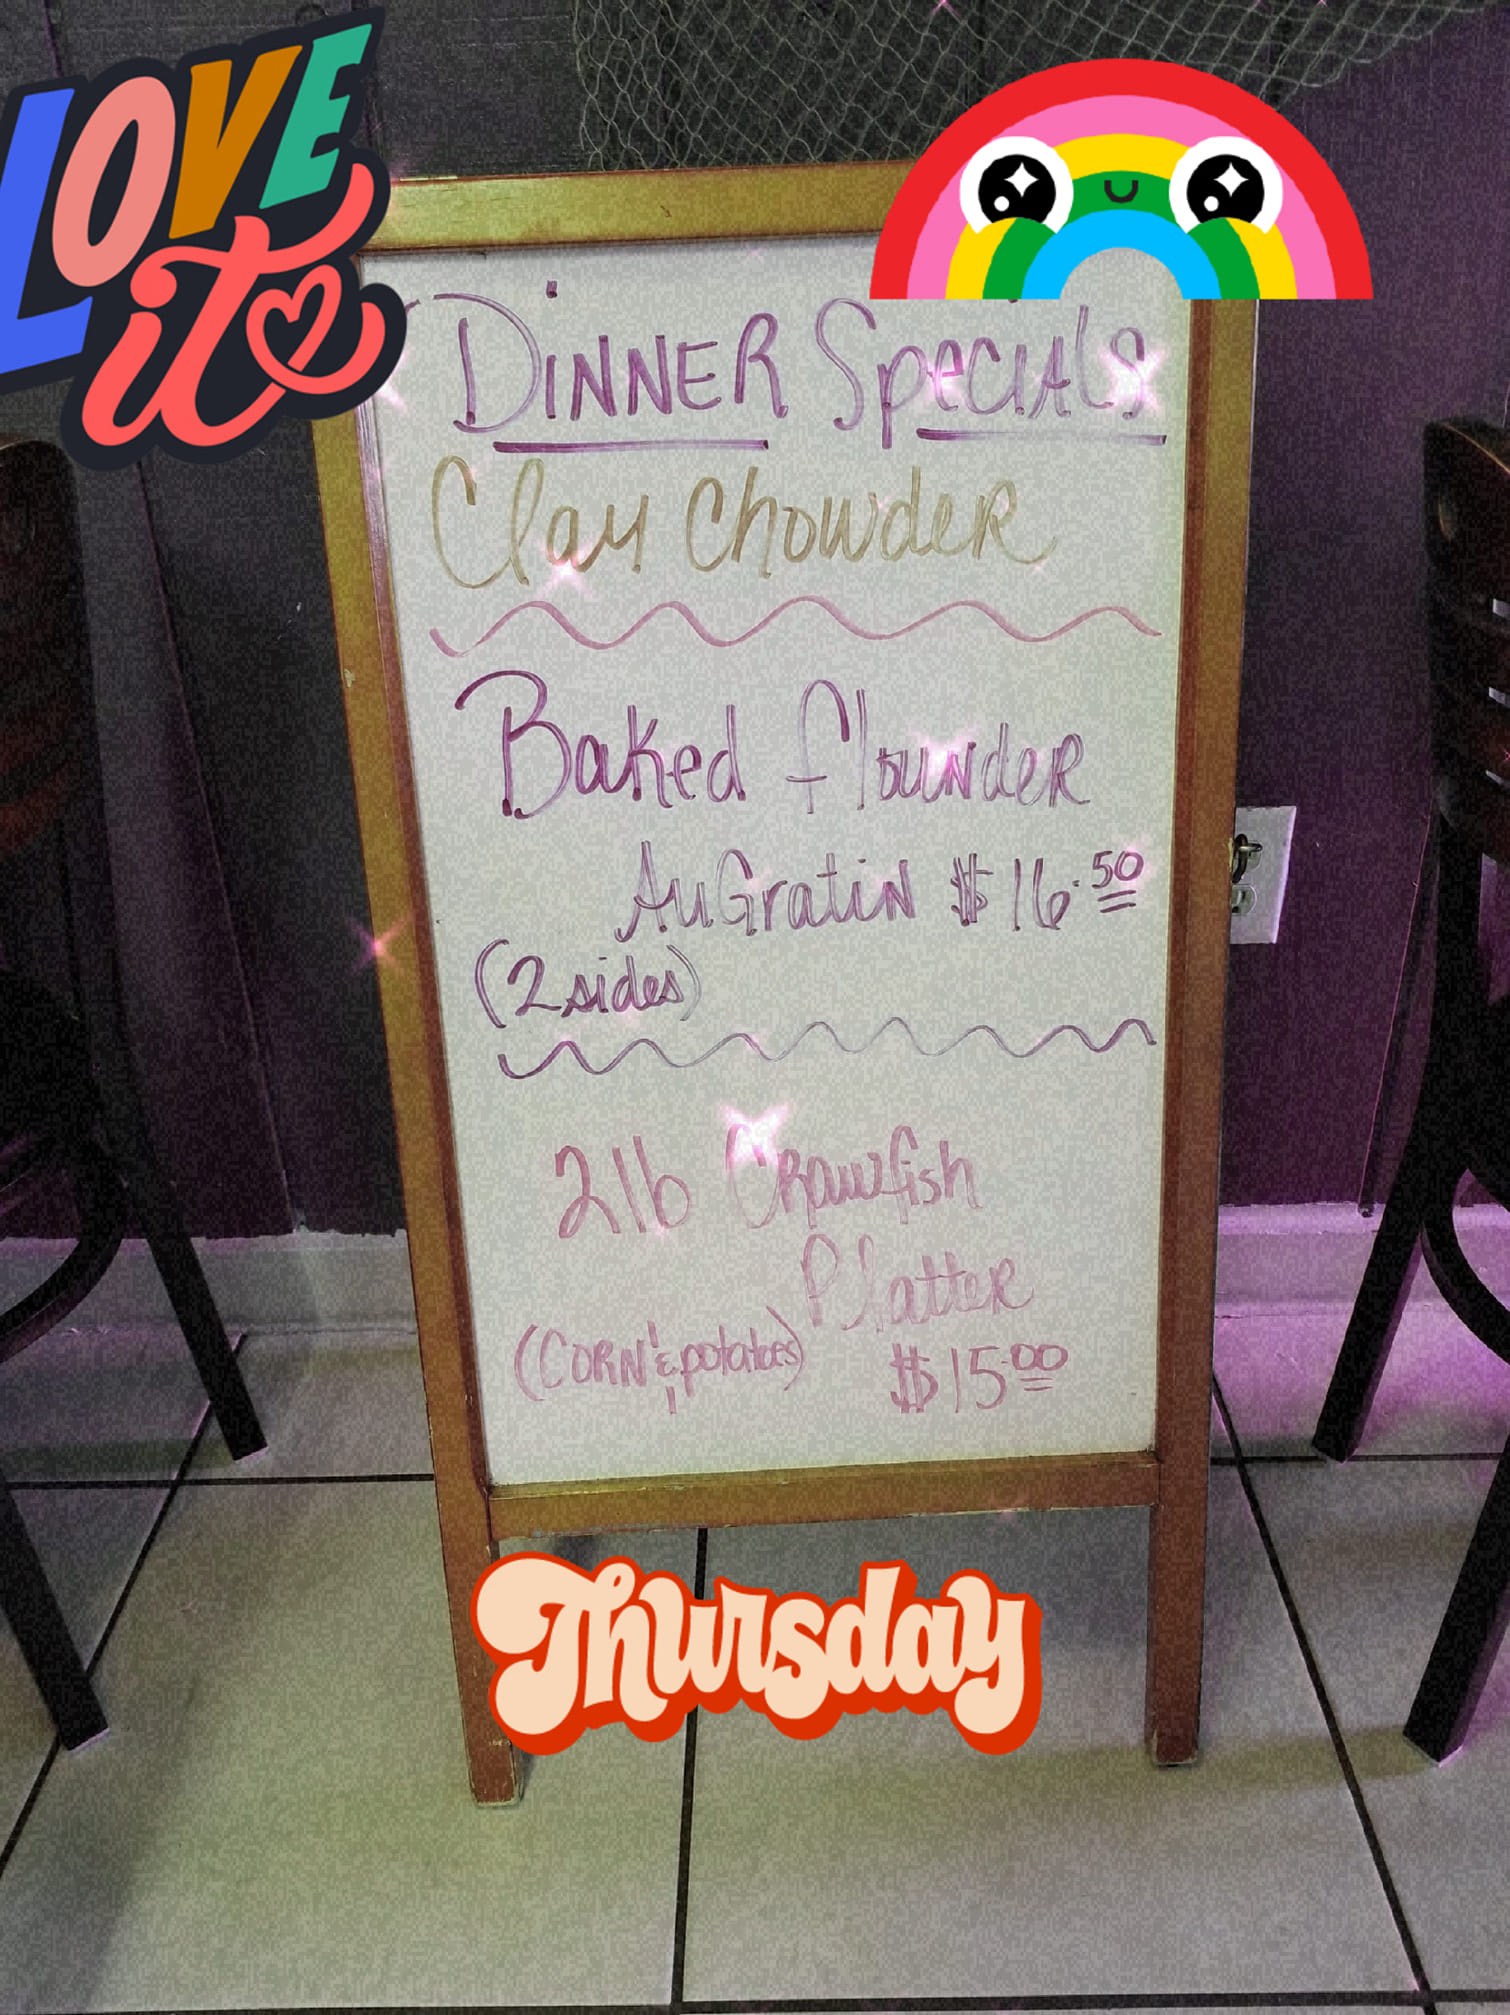 LOVE
it
DINNER Specials
Clam Chowder
Baked flounder
AuGratin $16.50
(2 sides)
2 lb Crawfish
Platter
(CORN & potatoes) $15.00
Thursday